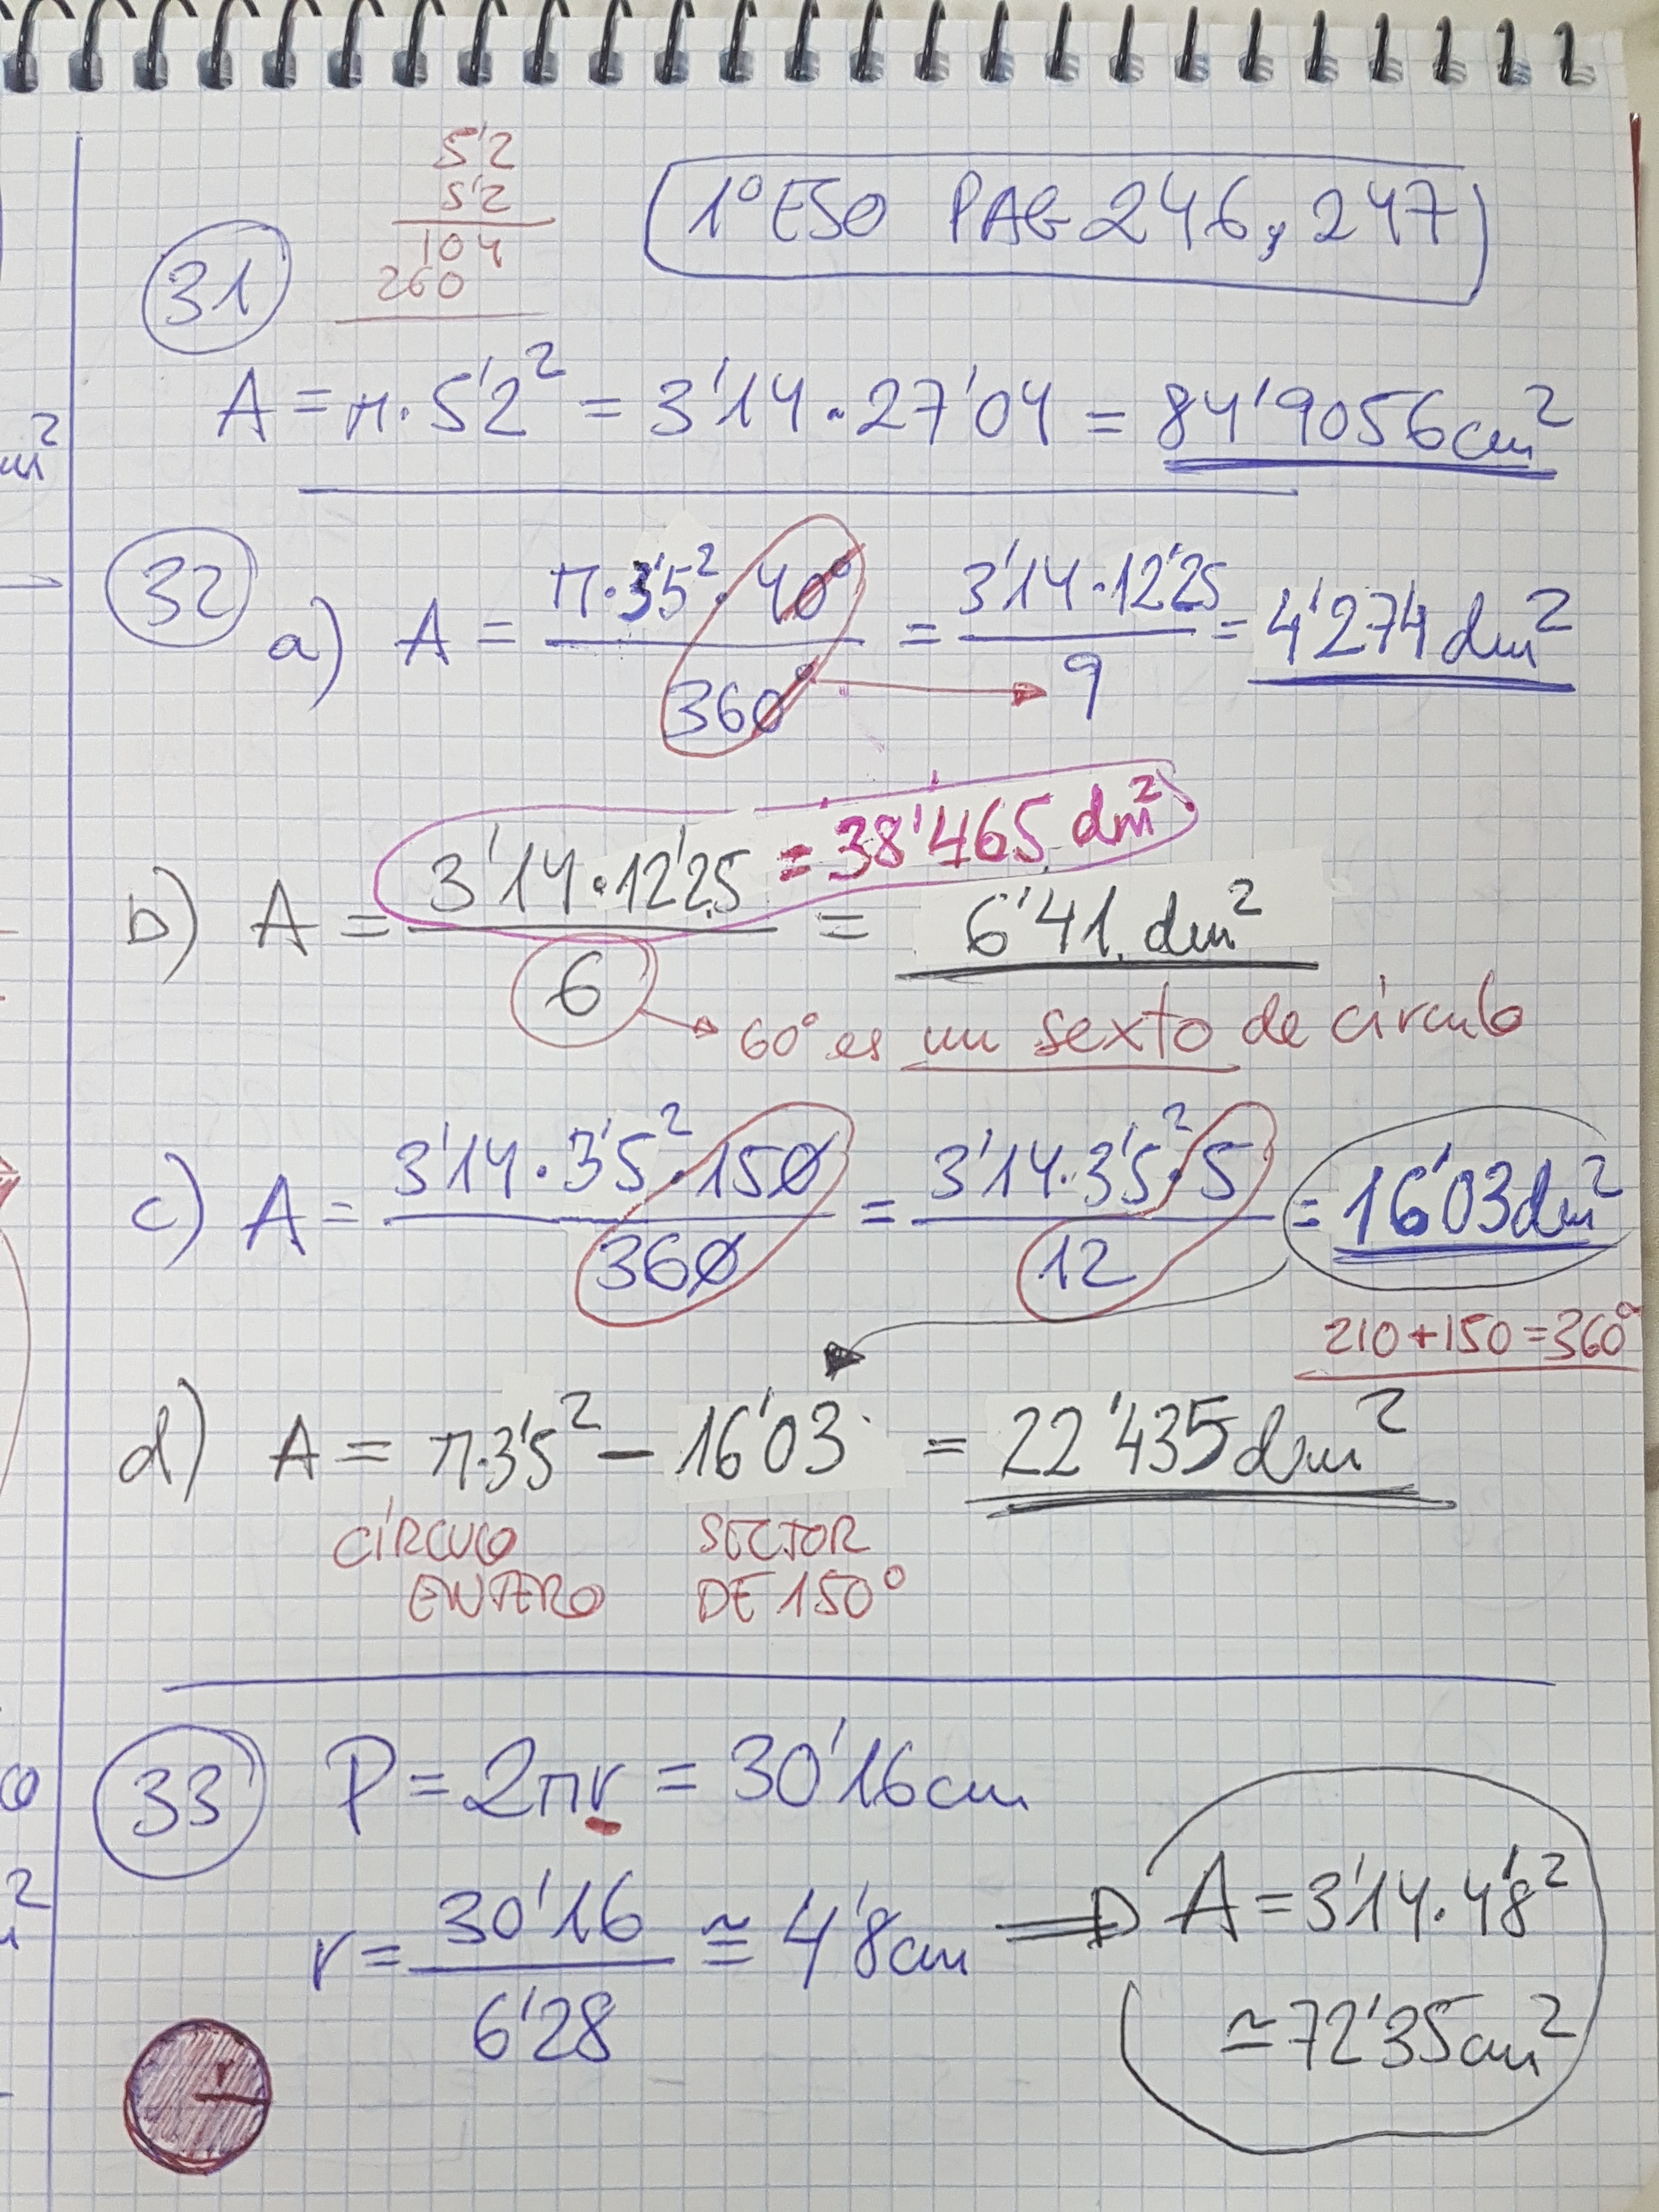 5'2
5'2
104
260
1º ESO PAG 246, 247
31
A = π·5'2² = 3'14·27'04 = 84'9056 cm²
32
a) A = π·3'5²·40° / 360° = 3'14·12'25 / 9 = 4'274 dm²
b) A = 3'14·12'25 / 6 = 6'41 dm²
= 38'465 dm²
60° es un sexto de círculo
c) A = 3'14·3'5²·150 / 360 = 3'14·3'5²·5 / 12 = 16'03 dm²
210+150=360°
d) A = π·3'5² - 16'03 = 22'435 dm²
CÍRCULO SECTOR
ENTERO DE 150°
33
P = 2πr = 30'16 cm
r = 30'16 / 6'28 ≅ 4'8 cm ⇒ A = 3'14·4'8²
≃ 72'35 cm²
r
m²